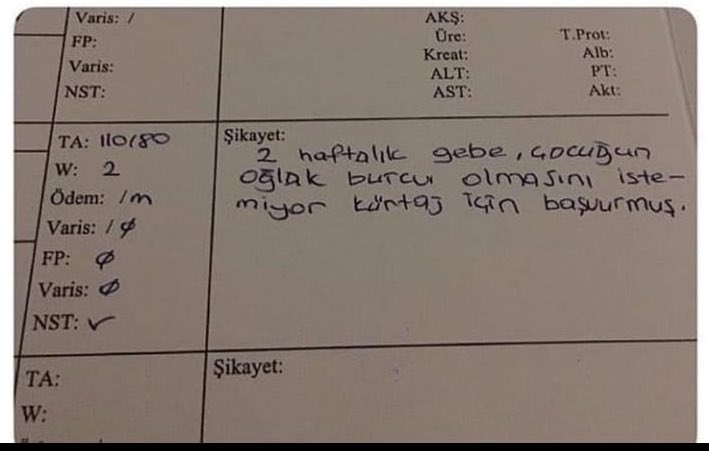 Varis: /
FP:
Varis:
NST:
AKŞ:
Üre:
Kreat:
ALT:
AST:
T.Prot:
Alb:
PT:
Akt:
TA: 110/80
W: 2
Ödem: /m
Varis: / ϕ
FP: ϕ
Varis: ϕ
NST: ✓
Şikayet:
2 haftalık gebe, çocuğun
oğlak burcu olmasını iste-
miyor kürtaj için başvurmuş.
TA:
W:
Şikayet: